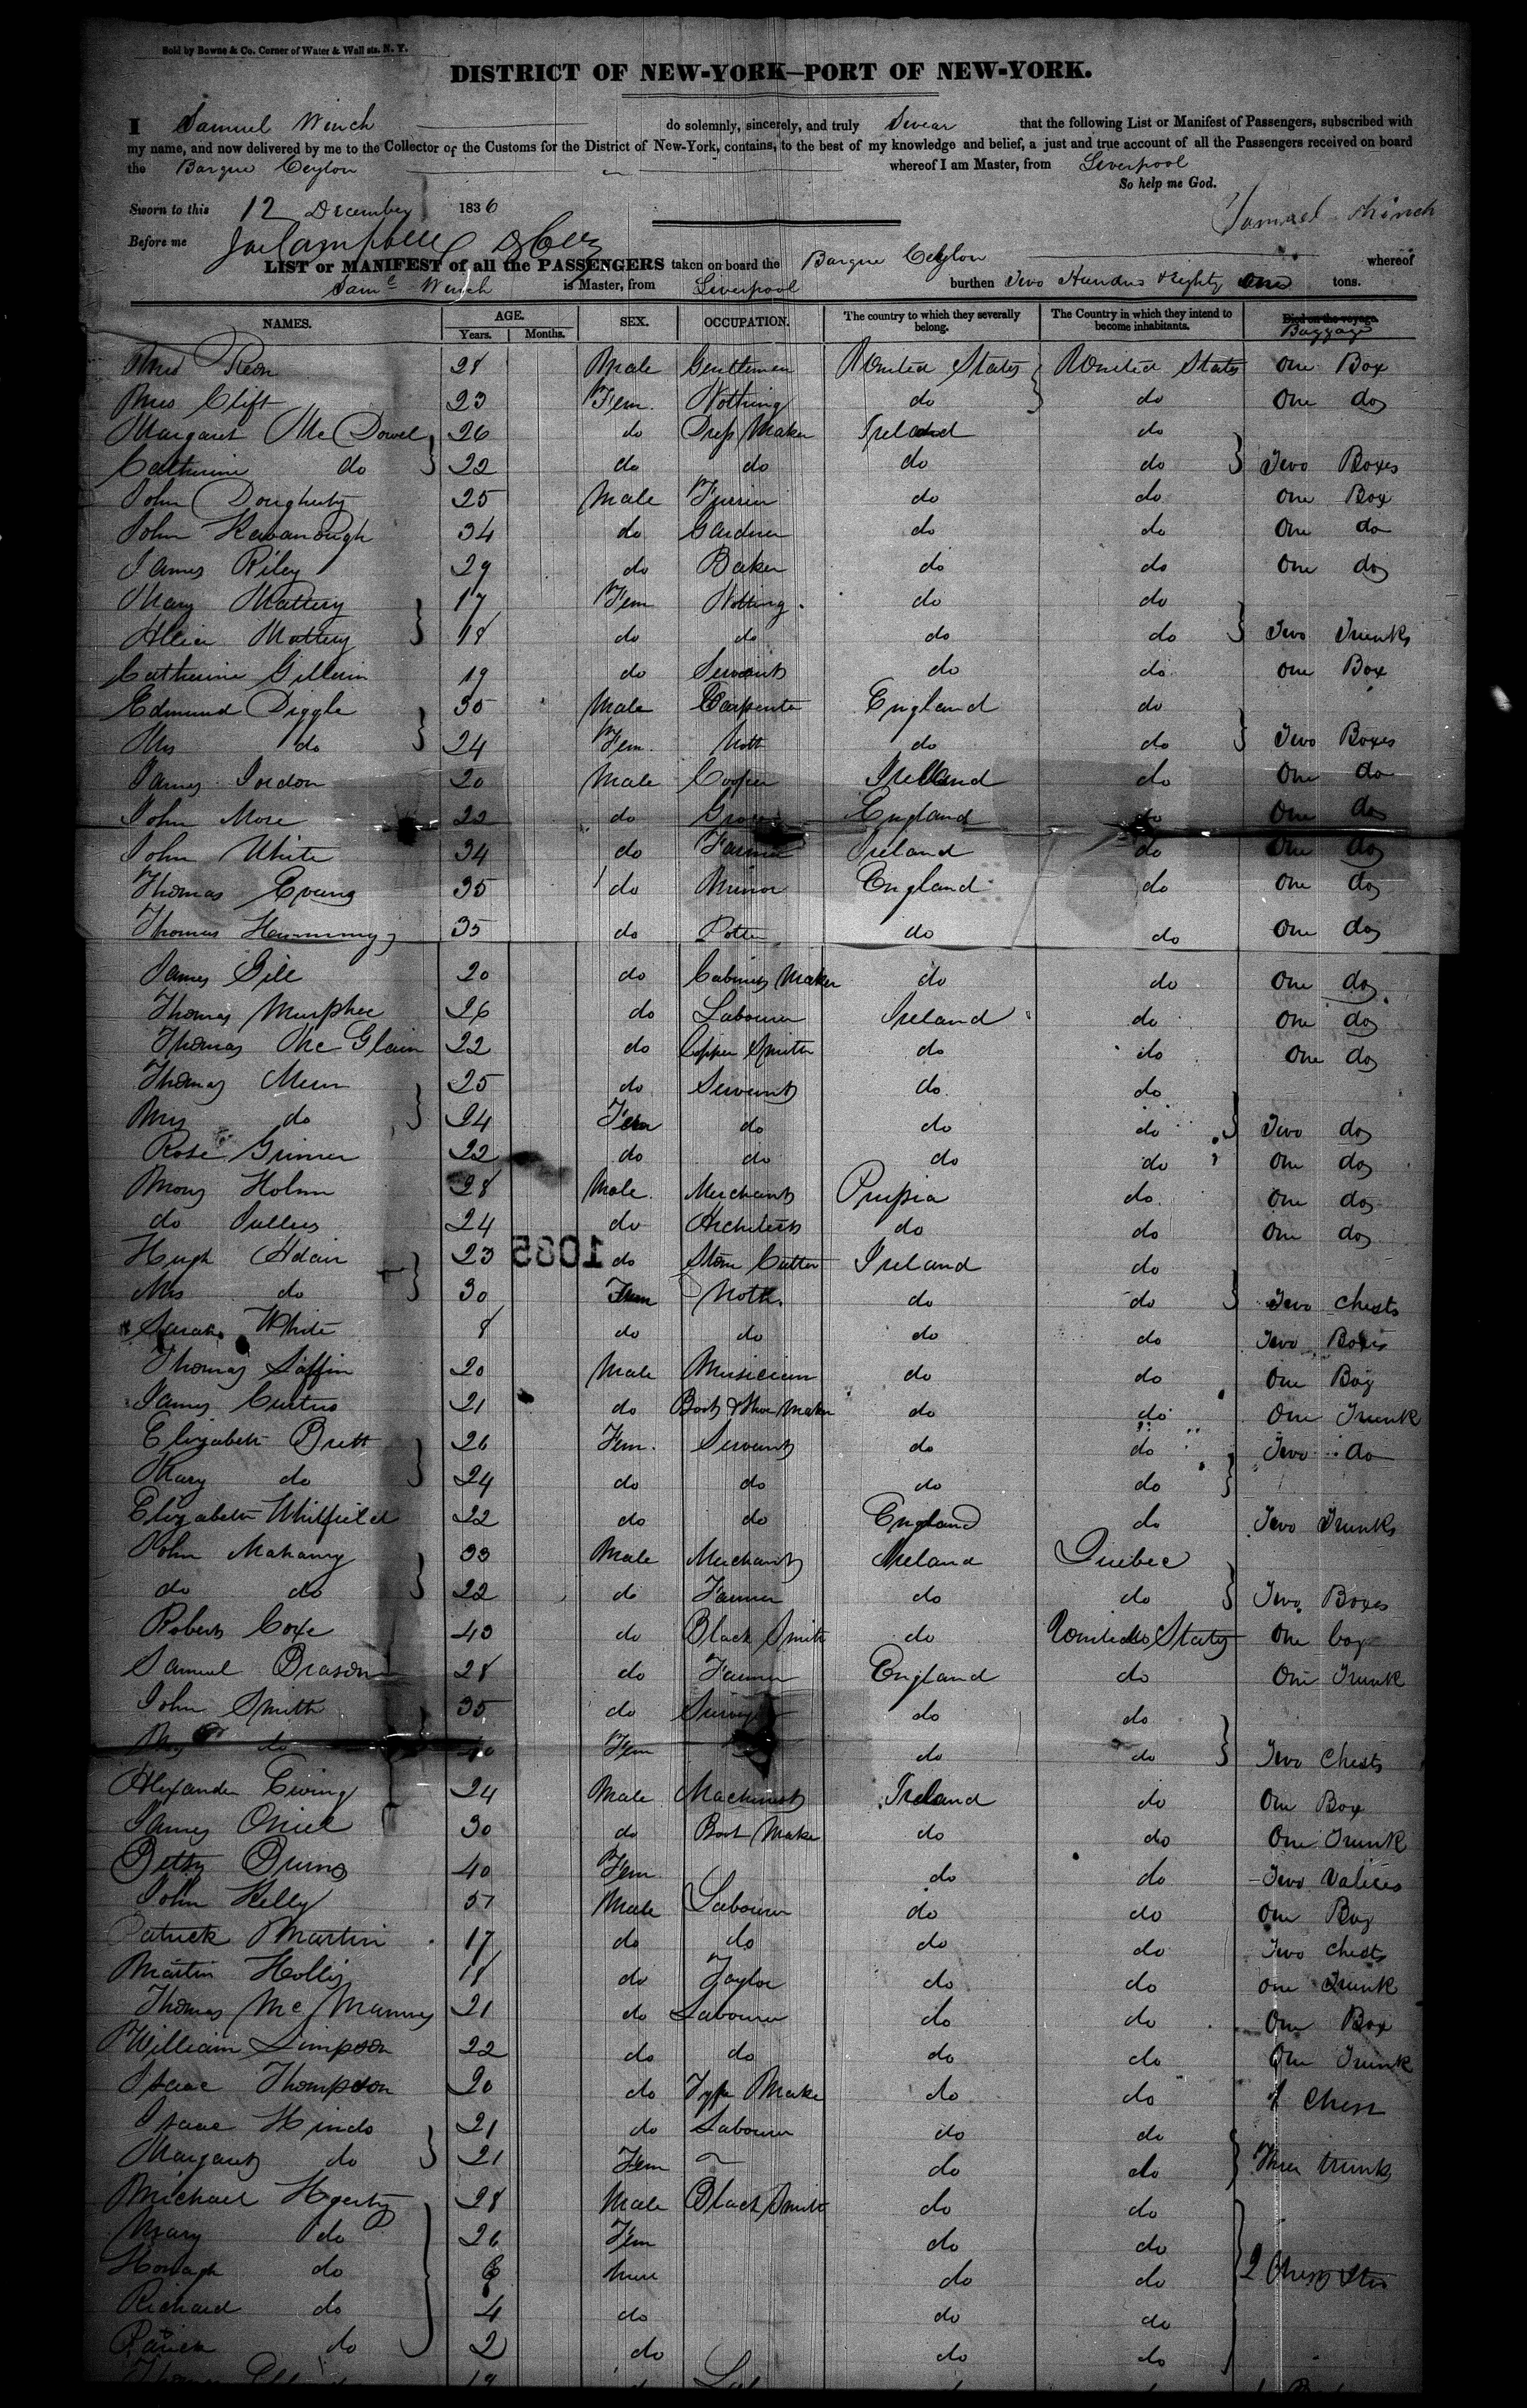 Sold by Bowne & Co. Corner of Water & Wall sts. N. Y.
DISTRICT OF NEW-YORK—PORT OF NEW-YORK.
I Samuel Winch do solemnly, sincerely, and truly Swear that the following List or Manifest of Passengers, subscribed with
my name, and now delivered by me to the Collector of the Customs for the District of New-York, contains, to the best of my knowledge and belief, a just and true account of all the Passengers received on board
the Barque Ceylon whereof I am Master, from Liverpool
So help me God.
Sworn to this 12 December 1836
Samuel Winch
Before me
LIST or MANIFEST of all the PASSENGERS taken on board the Barque Ceylon whereof
Saml Winch is Master, from Liverpool burthen Two Hundred & Eighty One tons.
NAMES. AGE. Years. Months. SEX. OCCUPATION. The country to which they severally belong. The Country in which they intend to become inhabitants. Died on the voyage. Baggage
28 Male Gentleman United States United States One Box
Clift 23 Fem. Nothing do do One do
Margaret Mc Dowel 26 do Dress Maker Ireland do
Catherine do 22 do do do do Two Boxes
John Dougherty 25 Male do do One Box
John Kavanough 34 do Gardner do do One do
James Riley 29 do Baker do do One do
Mary Mattery 17 Fem Nothing do do
Mattery 18 do do do do Two Trunks
Catherine 19 do Servant do do One Box
Edmund Diggle 30 Male Carpenter England do
Mrs do 24 Fem. Noth do do Two Boxes
James Jordon 20 Male Cooper Ireland do One do
John More 22 do England do One do
John White 34 do Farmer Ireland do One do
Thomas Evans 35 do Minor England do One do
Thomas Hemmings 35 do Potter do do One do
James Gill 20 do Cabinet Maker do do One do
Thomas Murphee 26 do Labourer Ireland do One do
Thomas Mc Glain 22 do Copper Smith do do One do
Thomas 25 do Servant do do
Mrs do 24 Fem do do do Two do
Rose 22 do do do do One do
Mons Holm 28 Male Merchant Prussia do One do
do 24 do Architect do do One do
Hugh Adair 23 1085 do Stone Cutter Ireland do
Mrs do 30 Fem Noth. do do Two Chests
Sarah White 8 do do do do Two Boxes
Thomas 20 Male Musician do do One Box
James 21 do Boot & Shoe Maker do do One Trunk
Elizabeth Brett 26 Fem. Servant do do Two do
Mary do 24 do do do do
Elizabeth Whitfield 22 do do England do Two Trunks
John Mahany 33 Male Merchant Ireland Quebec
do do 22 do Farmer do do Two Boxes
Robert Coxe 40 do Black Smith do United States One box
Samuel 28 do Farmer England do One Trunk
John Smith 35 do do do
do Fem do do Two Chests
Alexander Ewing 24 Male Machinist Ireland do One Box
James 30 do Boot Maker do do One Trunk
Betsy 40 Fem do do Two Valices
John Kelly Male Labourer do do One Bag
Patrick Martin 17 do do do do Two Chests
Martin Hollis 18 do Taylor do do One Trunk
Thomas Mc Manns 21 do Labourer do do One Box
William Simpson 22 do do do do One Trunk
Isaac Thompson 20 do Type Maker do do 1 Chest
Isaac Hinds 21 do Labourer do do
Margaret do 21 Fem do do Three trunks
Michael Hegerty 28 Male Black Smith do do
Mary do 26 Fem do do
do do do 2
Richard do 4 do do do
do 2 do do do